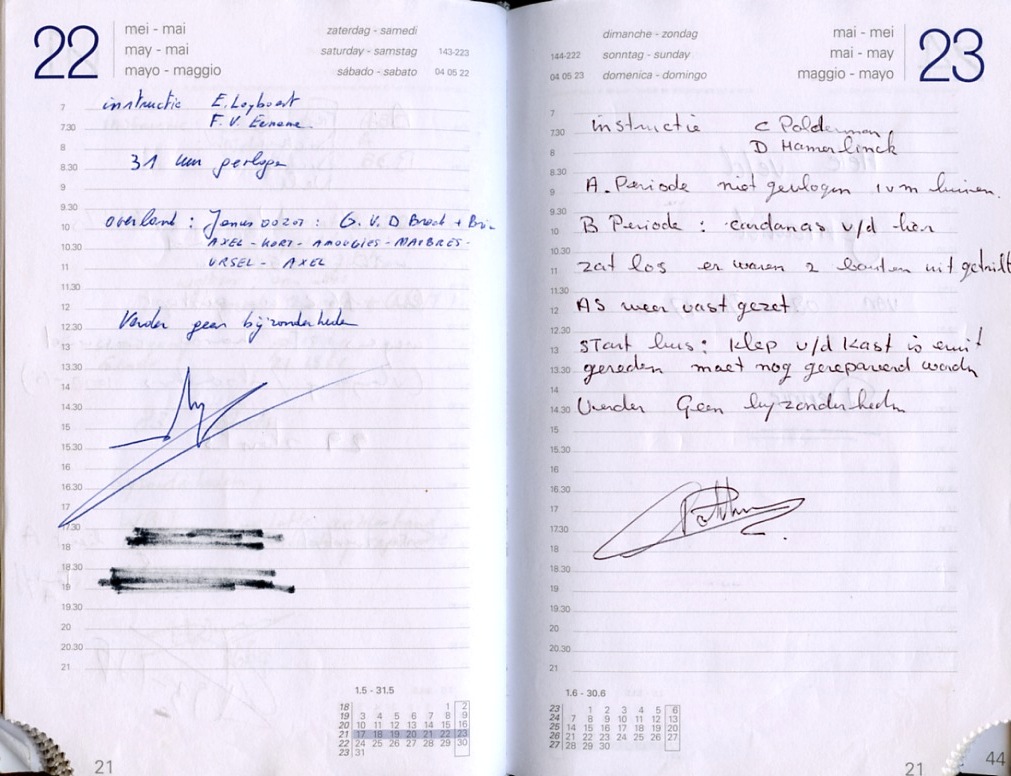 22
mei - mai
may - mai
mayo - maggio
zaterdag - samedi
saturday - samstag 143-223
sábado - sabato 04 05 22
instructie E. Leybaert
F. V.
31 km
overland : Janus 00201 : G. V. D Broek +
AXEL - KORT - AMOUGIES - MAUBRES -
URSEL - AXEL
Verder geen bijzonderheden
7
7.30
8
8.30
9
9.30
10
10.30
11
11.30
12
12.30
13
13.30
14
14.30
15
15.30
16
16.30
17
17.30
18
18.30
19
19.30
20
20.30
21
1.5 - 31.5
18 1 2
19 3 4 5 6 7 8 9
20 10 11 12 13 14 15 16
21 17 18 19 20 21 22 23
22 24 25 26 27 28 29 30
23 31
21
dimanche - zondag
144-222 sonntag - sunday
04 05 23 domenica - domingo
mai - mei
mai - may
maggio - mayo
23
instructie C Polderman
D Hamerlinck
A. Periode niet gevlogen ivm buien.
B Periode : cardanas v/d lier
zat los er waren 2 bouten uit getrilt
AS weer vast gezet
Start bus : klep v/d kast is eruit
gereden moet nog gerepareerd worden
Verder Geen byzonderheden
7
7.30
8
8.30
9
9.30
10
10.30
11
11.30
12
12.30
13
13.30
14
14.30
15
15.30
16
16.30
17
17.30
18
18.30
19
19.30
20
20.30
21
1.6 - 30.6
23 1 2 3 4 5 6
24 7 8 9 10 11 12 13
25 14 15 16 17 18 19 20
26 21 22 23 24 25 26 27
27 28 29 30
21
44